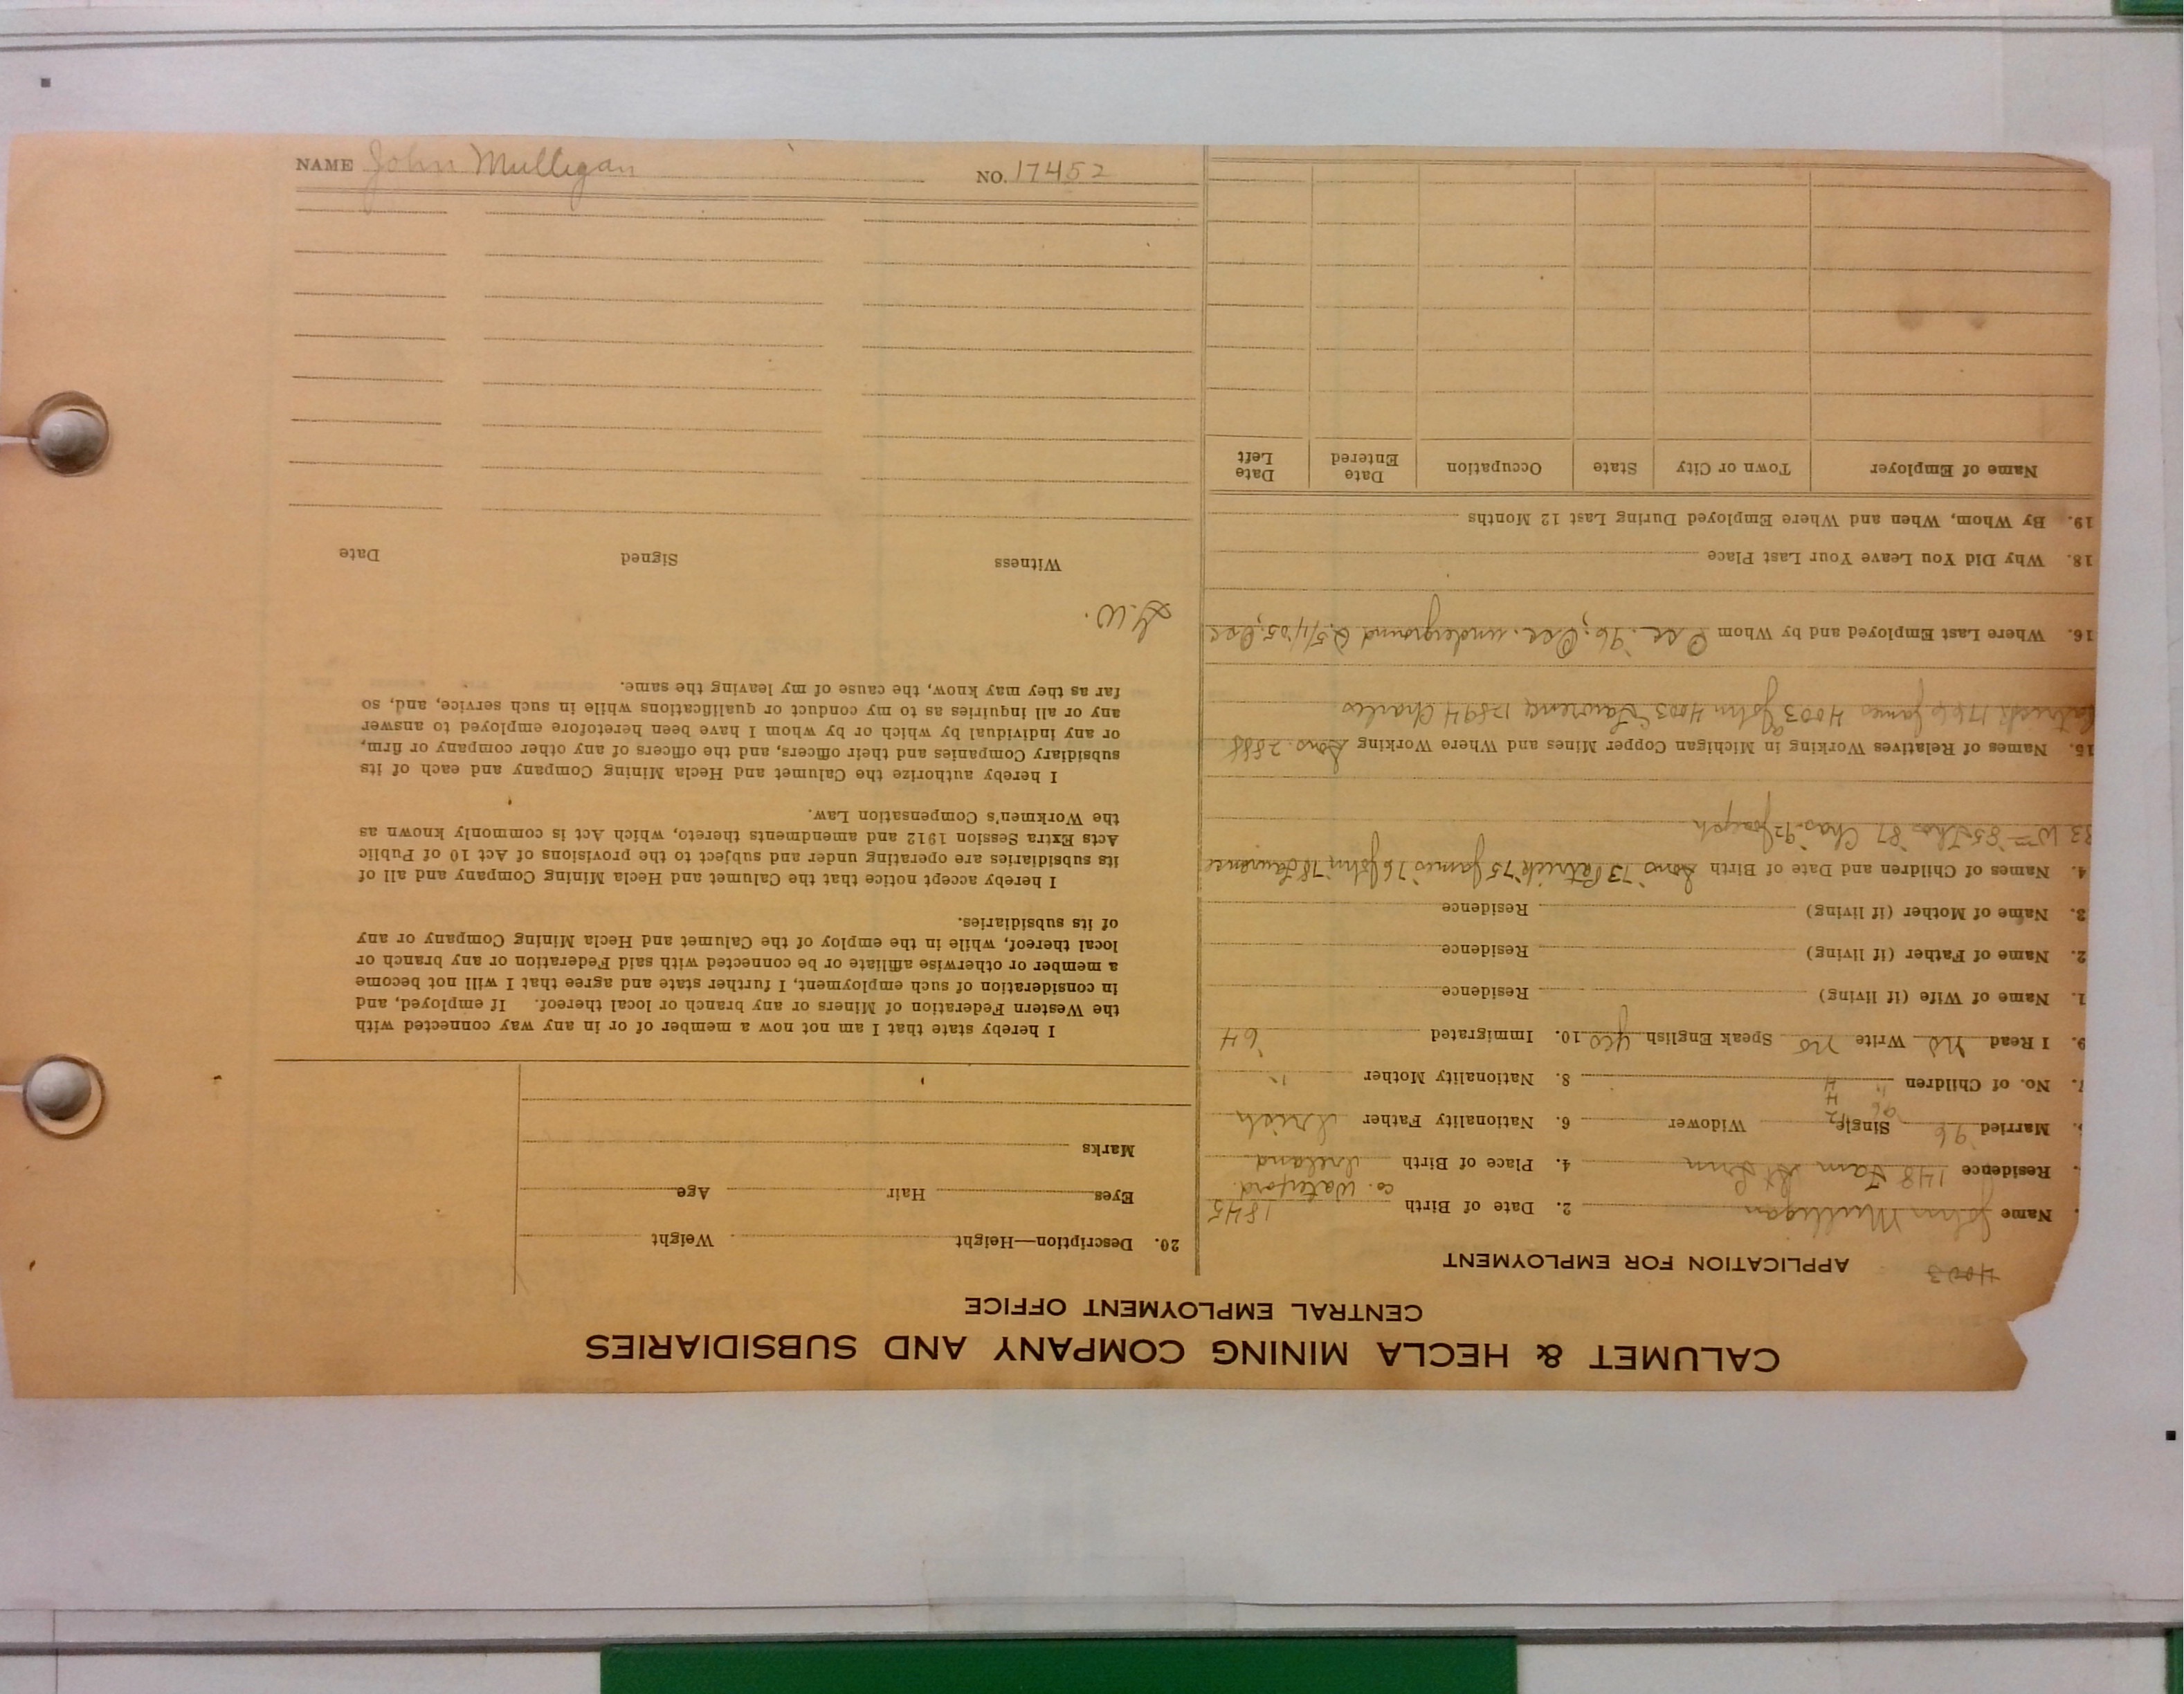 CALUMET & HECLA MINING COMPANY AND SUBSIDIARIES
CENTRAL EMPLOYMENT OFFICE
4003
APPLICATION FOR EMPLOYMENT
Name John Mulligan 2. Date of Birth 1845
Co. Waterford
Residence 148 Tam 4. Place of Birth Ireland
Married 96 Single Widower 6. Nationality Father Irish
96
No. of Children 8. Nationality Mother "
9. I Read no Write no Speak English yes 10. Immigrated '64
1. Name of Wife (if living) Residence
2. Name of Father (if living) Residence
3. Name of Mother (if living) Residence
4. Names of Children and Date of Birth Sons '73 Patrick '75 James '76 John '78 Lawrence
83 Wm 85 Thos '87 Chas. 92 Joseph
15. Names of Relatives Working in Michigan Copper Mines and Where Working Sons. 2888
Patrick 1766 James 4003 John 4003 Lawrence 12894 Charles
16. Where Last Employed and by Whom Osc. '96, Osc. underground 5/1/05, Osc
18. Why Did You Leave Your Last Place
19. By Whom, When and Where Employed During Last 12 Months
Name of Employer Town or City State Occupation Date Entered Date Left
20. Description—Height Weight
Eyes Hair Age
Marks
I hereby state that I am not now a member of or in any way connected with
the Western Federation of Miners or any branch or local thereof. If employed, and
in consideration of such employment, I further state and agree that I will not become
a member or otherwise affiliate or be connected with said Federation or any branch or
local thereof, while in the employ of the Calumet and Hecla Mining Company or any
of its subsidiaries.
I hereby accept notice that the Calumet and Hecla Mining Company and all of
its subsidiaries are operating under and subject to the provisions of Act 10 of Public
Acts Extra Session 1912 and amendments thereto, which Act is commonly known as
the Workmen's Compensation Law.
I hereby authorize the Calumet and Hecla Mining Company and each of its
subsidiary Companies and their officers, and the officers of any other company or firm,
or any individual by which or by whom I have been heretofore employed to answer
any or all inquiries as to my conduct or qualifications while in such service, and, so
far as they may know, the cause of my leaving the same.
Witness Signed Date
NAME John Mulligan NO. 17452